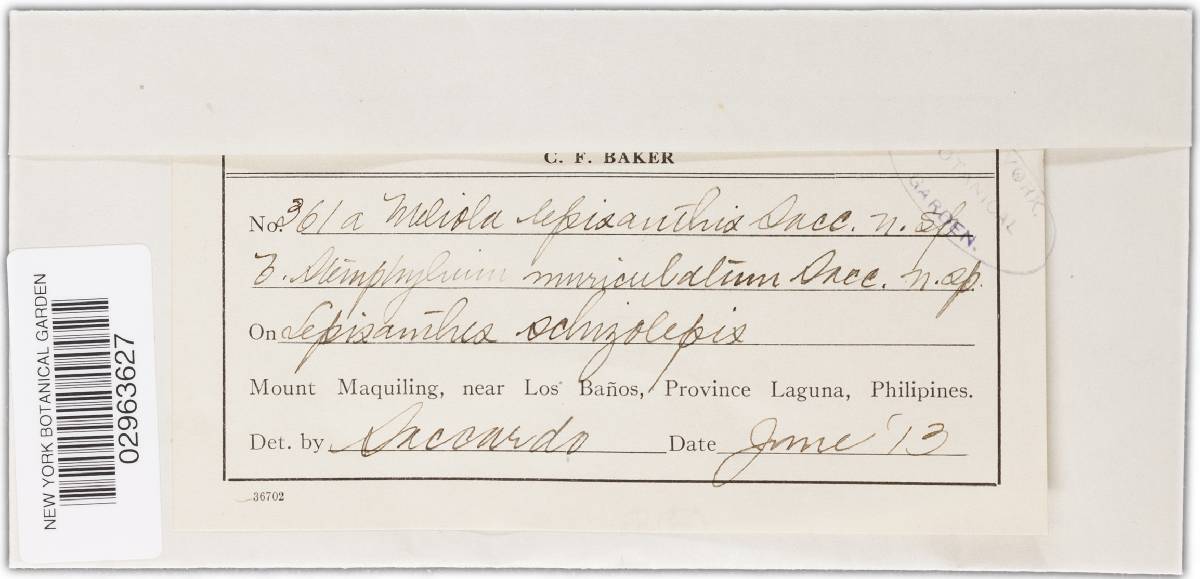 C. F. BAKER
No. 361a Meliola lepisanthis Sacc. n. sp
b. Stemphylium muriculatum Sacc. n. sp.
On Lepisanthes schizolepis
Mount Maquiling, near Los Baños, Province Laguna, Philipines.
Det. by Saccardo Date June '13
36702
YORK
BOTANICAL
GARDEN.
NEW YORK BOTANICAL GARDEN
02963627